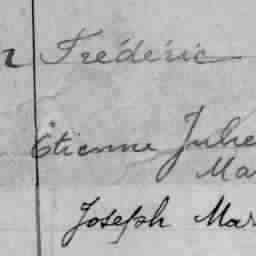 Frédéric
Étienne Jule
Mar
Joseph Mar